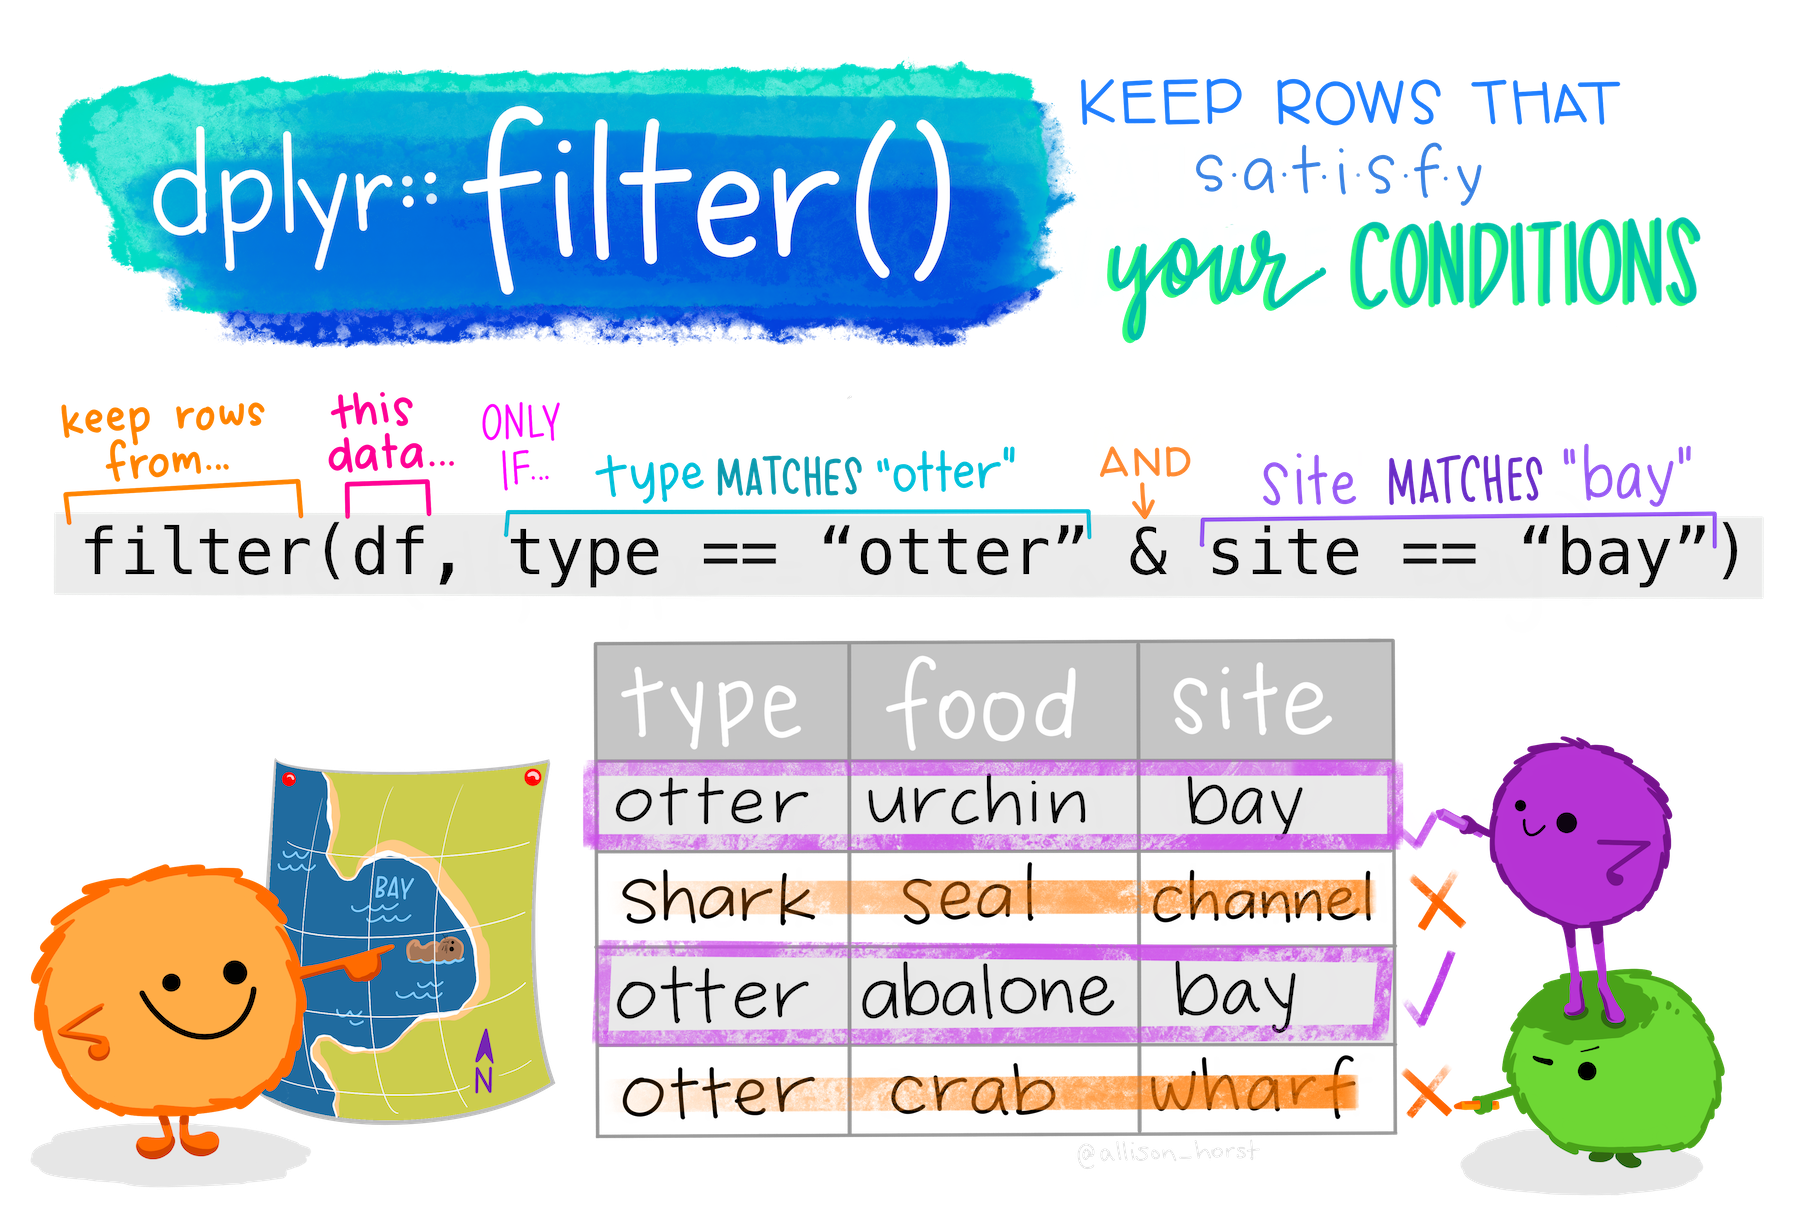 dplyr::filter()
KEEP ROWS THAT
s·a·t·i·s·f·y
your CONDITIONS
keep rows
from...
this
data...
ONLY
IF...
type MATCHES "otter"
AND
site MATCHES "bay"
filter(df, type == “otter” & site == “bay”)
type food site
otter urchin bay
shark seal channel
otter abalone bay
otter crab wharf
BAY
N
@allison_horst